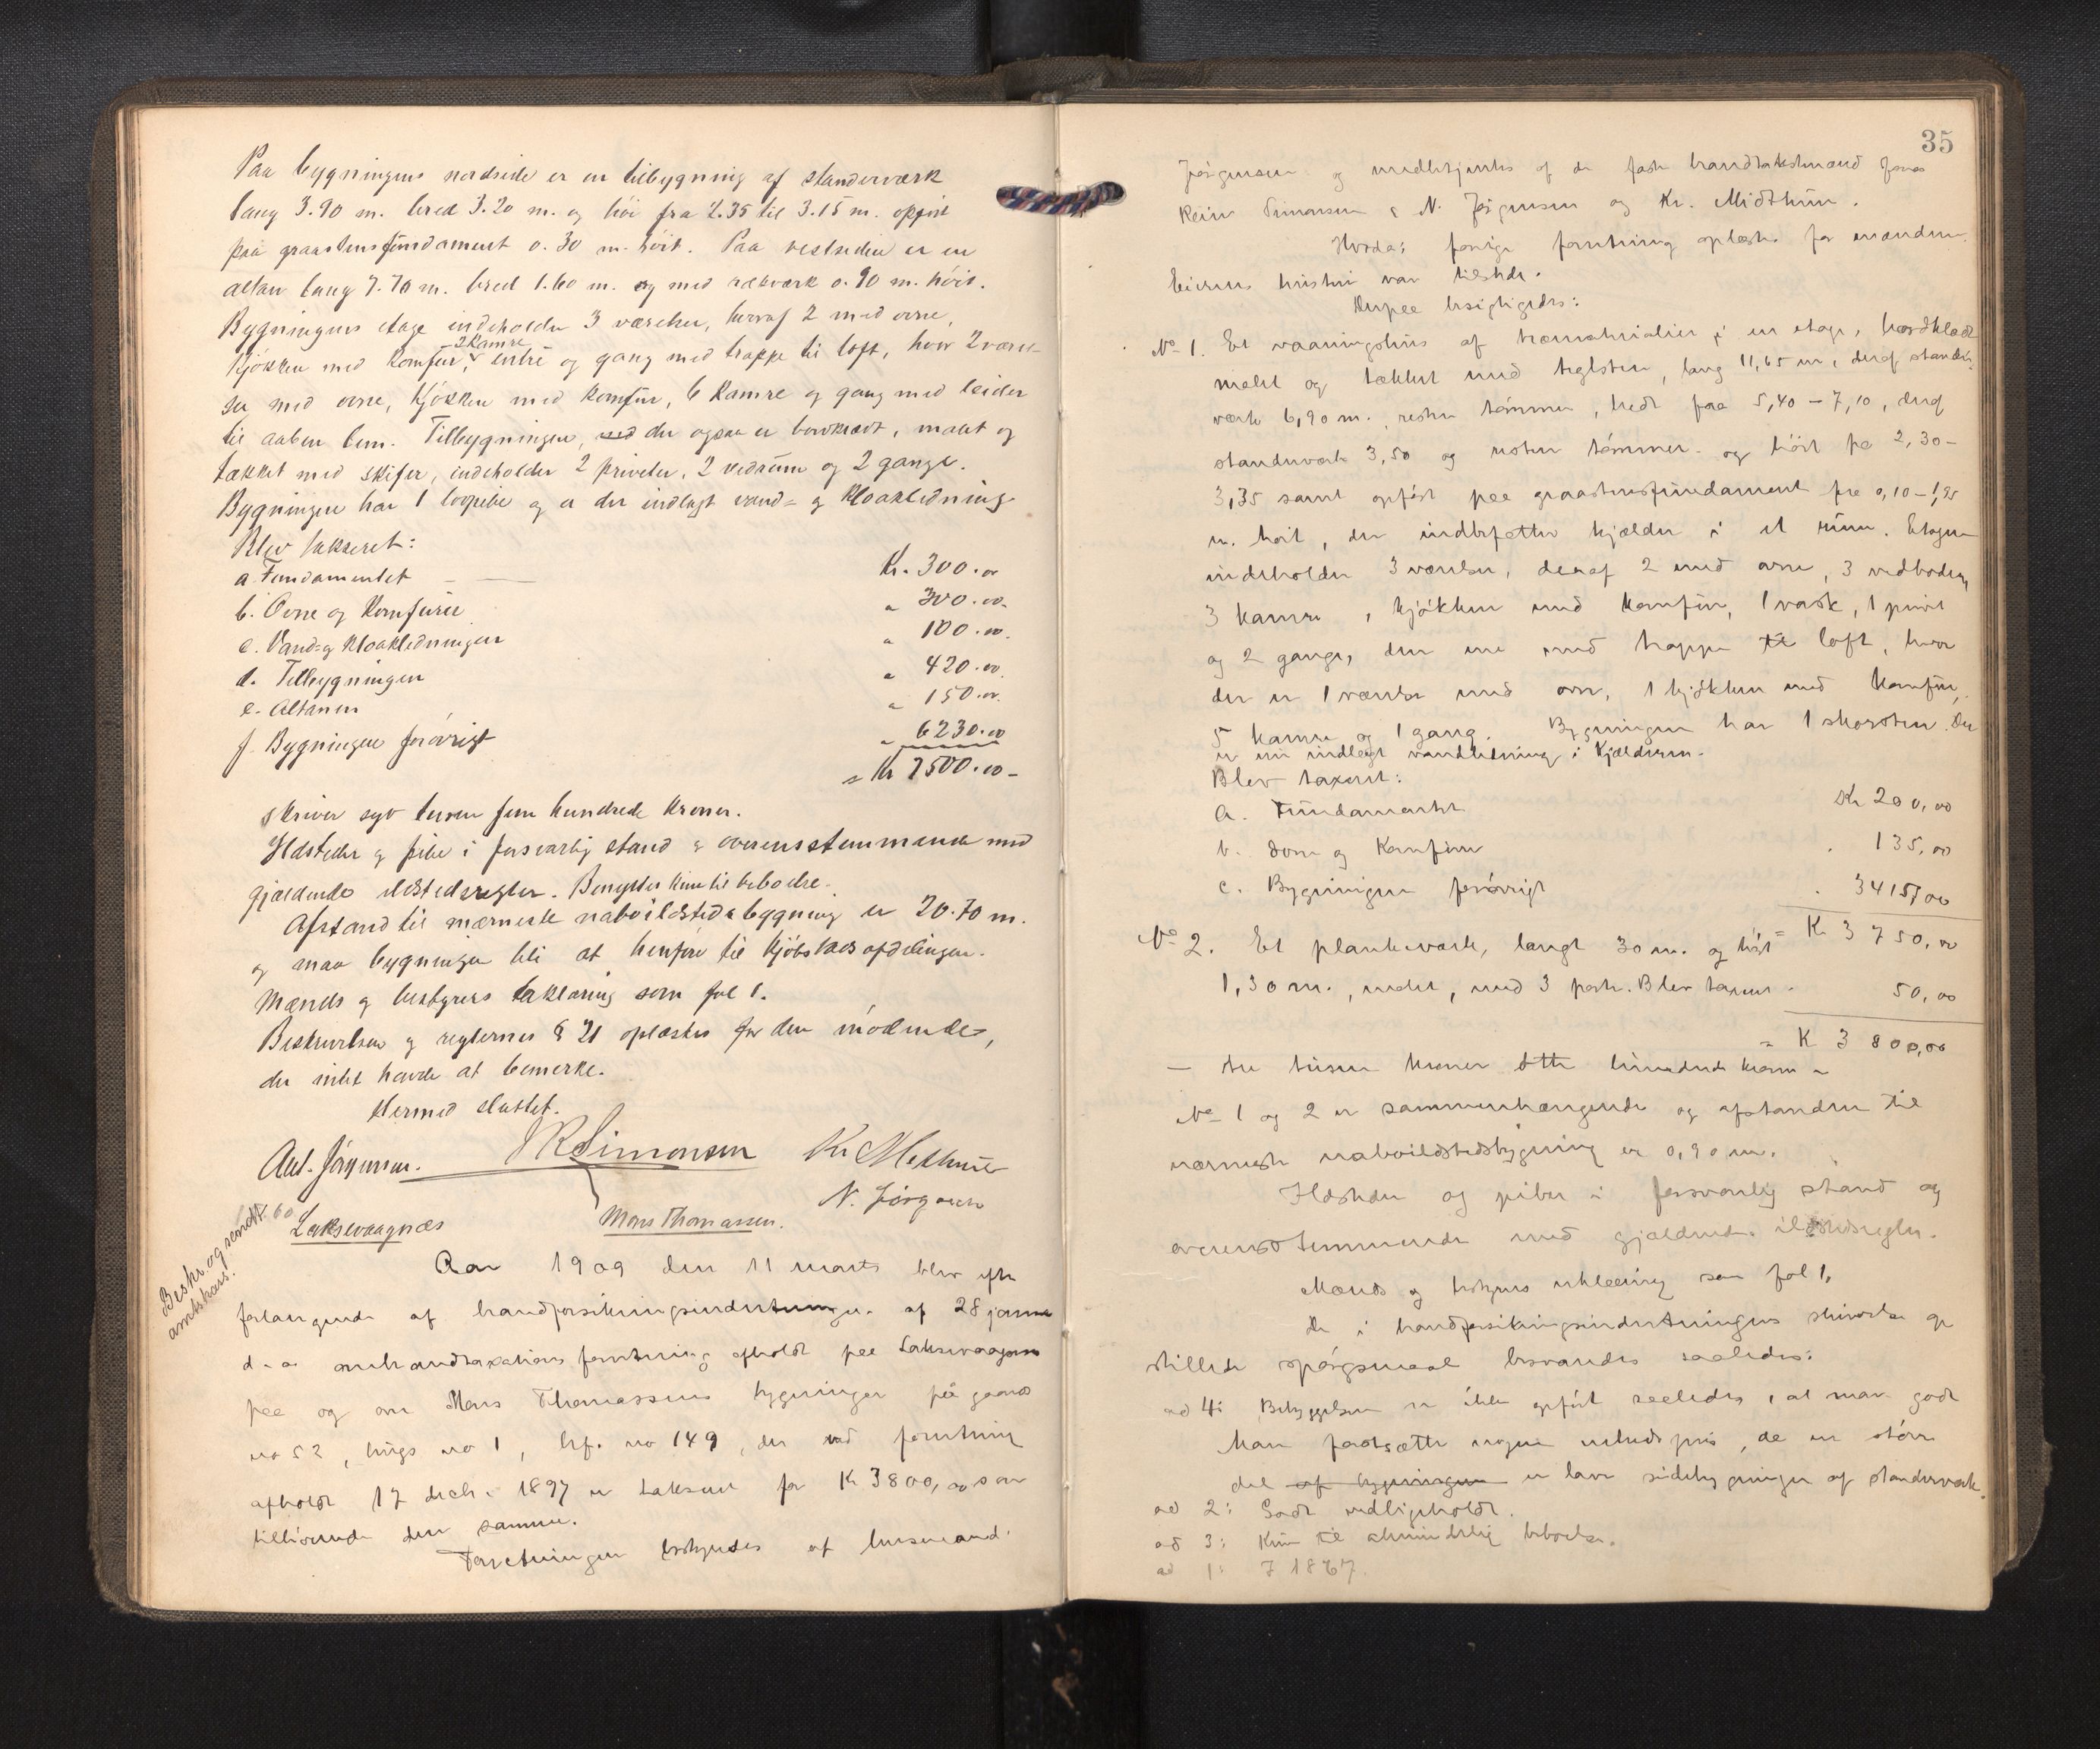 Paa bygningens nordside er en tilbygning af standerværk
lang 3.90 m. bred 3.20 m. og höi fra 2.35 til 3.15 m. opfört
paa graastensfundament 0.30 m. höit. Paa vestsiden er en
altan lang 7.70 m. bred 1.60 m. og med rækværk 0.90 m. höit.
Bygningens etage indeholder 3 værelser, hvoraf 2 med ovne,
2 kamre
kjökken med komfur, entré og gang med trappe til loft, hvor 2 værel-
ser med ovne, kjökken med komfur, 6 kamre og gang med leider
til aaben lem. Tilbygningen, der ogsaa er bordklædt, malet og
tækket med skifer, indeholder 2 priveter, 2 vedrum og 2 gange.
Bygningen har 1 pibe og er der indlagt vand- og kloakledning
Blev takseret:
a. Fundamentet Kr. 300.00
b. Ovne og komfurer " 300.00.
c. Vand- og kloakledningen " 100.00.
d. Tilbygningen " 420.00.
e. Altanen " 150.00.
f. Bygningen forövrigt " 6230.00
= Kr 7500.00 -
skriver syv tusen fem hundrede kroner.
Ildsteder og pibe i forsvarlig stand og overensstemmende med
gjældende ildstedsregler. Benyttes kun til beboelse.
Afstand til nærmeste naboildstedsbygning er 20.70 m.
og maa bygningen bli at henföre til kjöbstadsafdelingen.
Mænds og bestyrers erklæring som fol 1.
Beskrivelsen og reglernes § 21 oplæstes for den mödende,
der intet havde at bemerke.
Hermed sluttet.
Ant. Jörgensen. J R Simonsen Kr Midthun
N. Jörgensen
Laksevaagnæs Mons Thomassen.
Beskr. og sendt 60
amtskass.
Aar 1909 den 11 marts blev efter
forlangende af brandforsikringsindretningen af 28 januar
d. a. ombrandtaxationsforretning afholdt paa Laksevaagnæs
paa og over Mons Thomassens bygninger på gaards
no 52, brugs no 1, brf. no 149, der ved forretning
afholdt 17 decbr. 1897 er takseret for Kr 3800,00 som
tilhörende den samme.
Forretningen bestyrtes af lensmand
35
Jörgensen og medbetjentes af de faste brandtakstmænd Jonas
Rein Simonsen & N. Jörgensen og Kr. Midthun.
Hvorda: forrige forretning oplæstes for mændene.
Eierens hustru var tilstede.
Derpaa besigtigedes:
No 1. Et vaaningshus af træmaterialier i en etage, bordklædt
malet og tækket med teglsten, lang 11,65 m, deraf stander-
værk 6,90 m. resten tömmer, bredt fra 5,40 – 7,10, deraf
standerværk 3,50 og resten tömmer og höit fra 2,30 –
3,35 samt opfört paa graastensfundament fra 0,10 – 1,95
m. höit, der indbefatter kjælder i et rum. Etagen
indeholder 3 værelser, deraf 2 med ovne, 3 vedboder,
3 kamre, 1 kjökken med komfur, 1 vask, 1 privet
og 2 gange, den ene med trappe til loft, hvor
der er 1 værelse med ovn, 1 kjökken med komfur,
5 kamre og 1 gang. Bygningen har 1 skorsten. Der
er nu indlagt vandledning i kjælderen.
Blev taxeret:
a. Fundamentet Kr 200,00
b. Ovne og Komfurer " 135,00
c. Bygningen forövrigt " 3415,00
= Kr 3750,00
No 2. Et plankeværk, langt 30 m. og höit
1,30 m., malet, med 3 porte. Blev taxeret " 50,00
= K 3 800,00
– tre tusen kroner otte hundrede kroner –
No 1 og 2 er sammenhængende og afstanden til
nærmeste naboildstedsbygning er 0,90 m.
Ildsteder og piber i forsvarlig stand og
overensstemmende med gjældende ildstedsregler.
Mænds og bestyrers erklæring som fol 1,
De i brandforsikringsindretningens skrivelse op
stillede spörgsmaal besvaredes saaledes:
ad 4: Bebyggelsen er ikke opfört saaledes, at man godt
kan fastsætte nogen enhedspris, da en större
del af bygningen er lave sidebygninger af standerværk.
ad 2: Godt vedligeholdt.
ad 3: Kun til almindelig beboelse.
ad 1: I 1867.